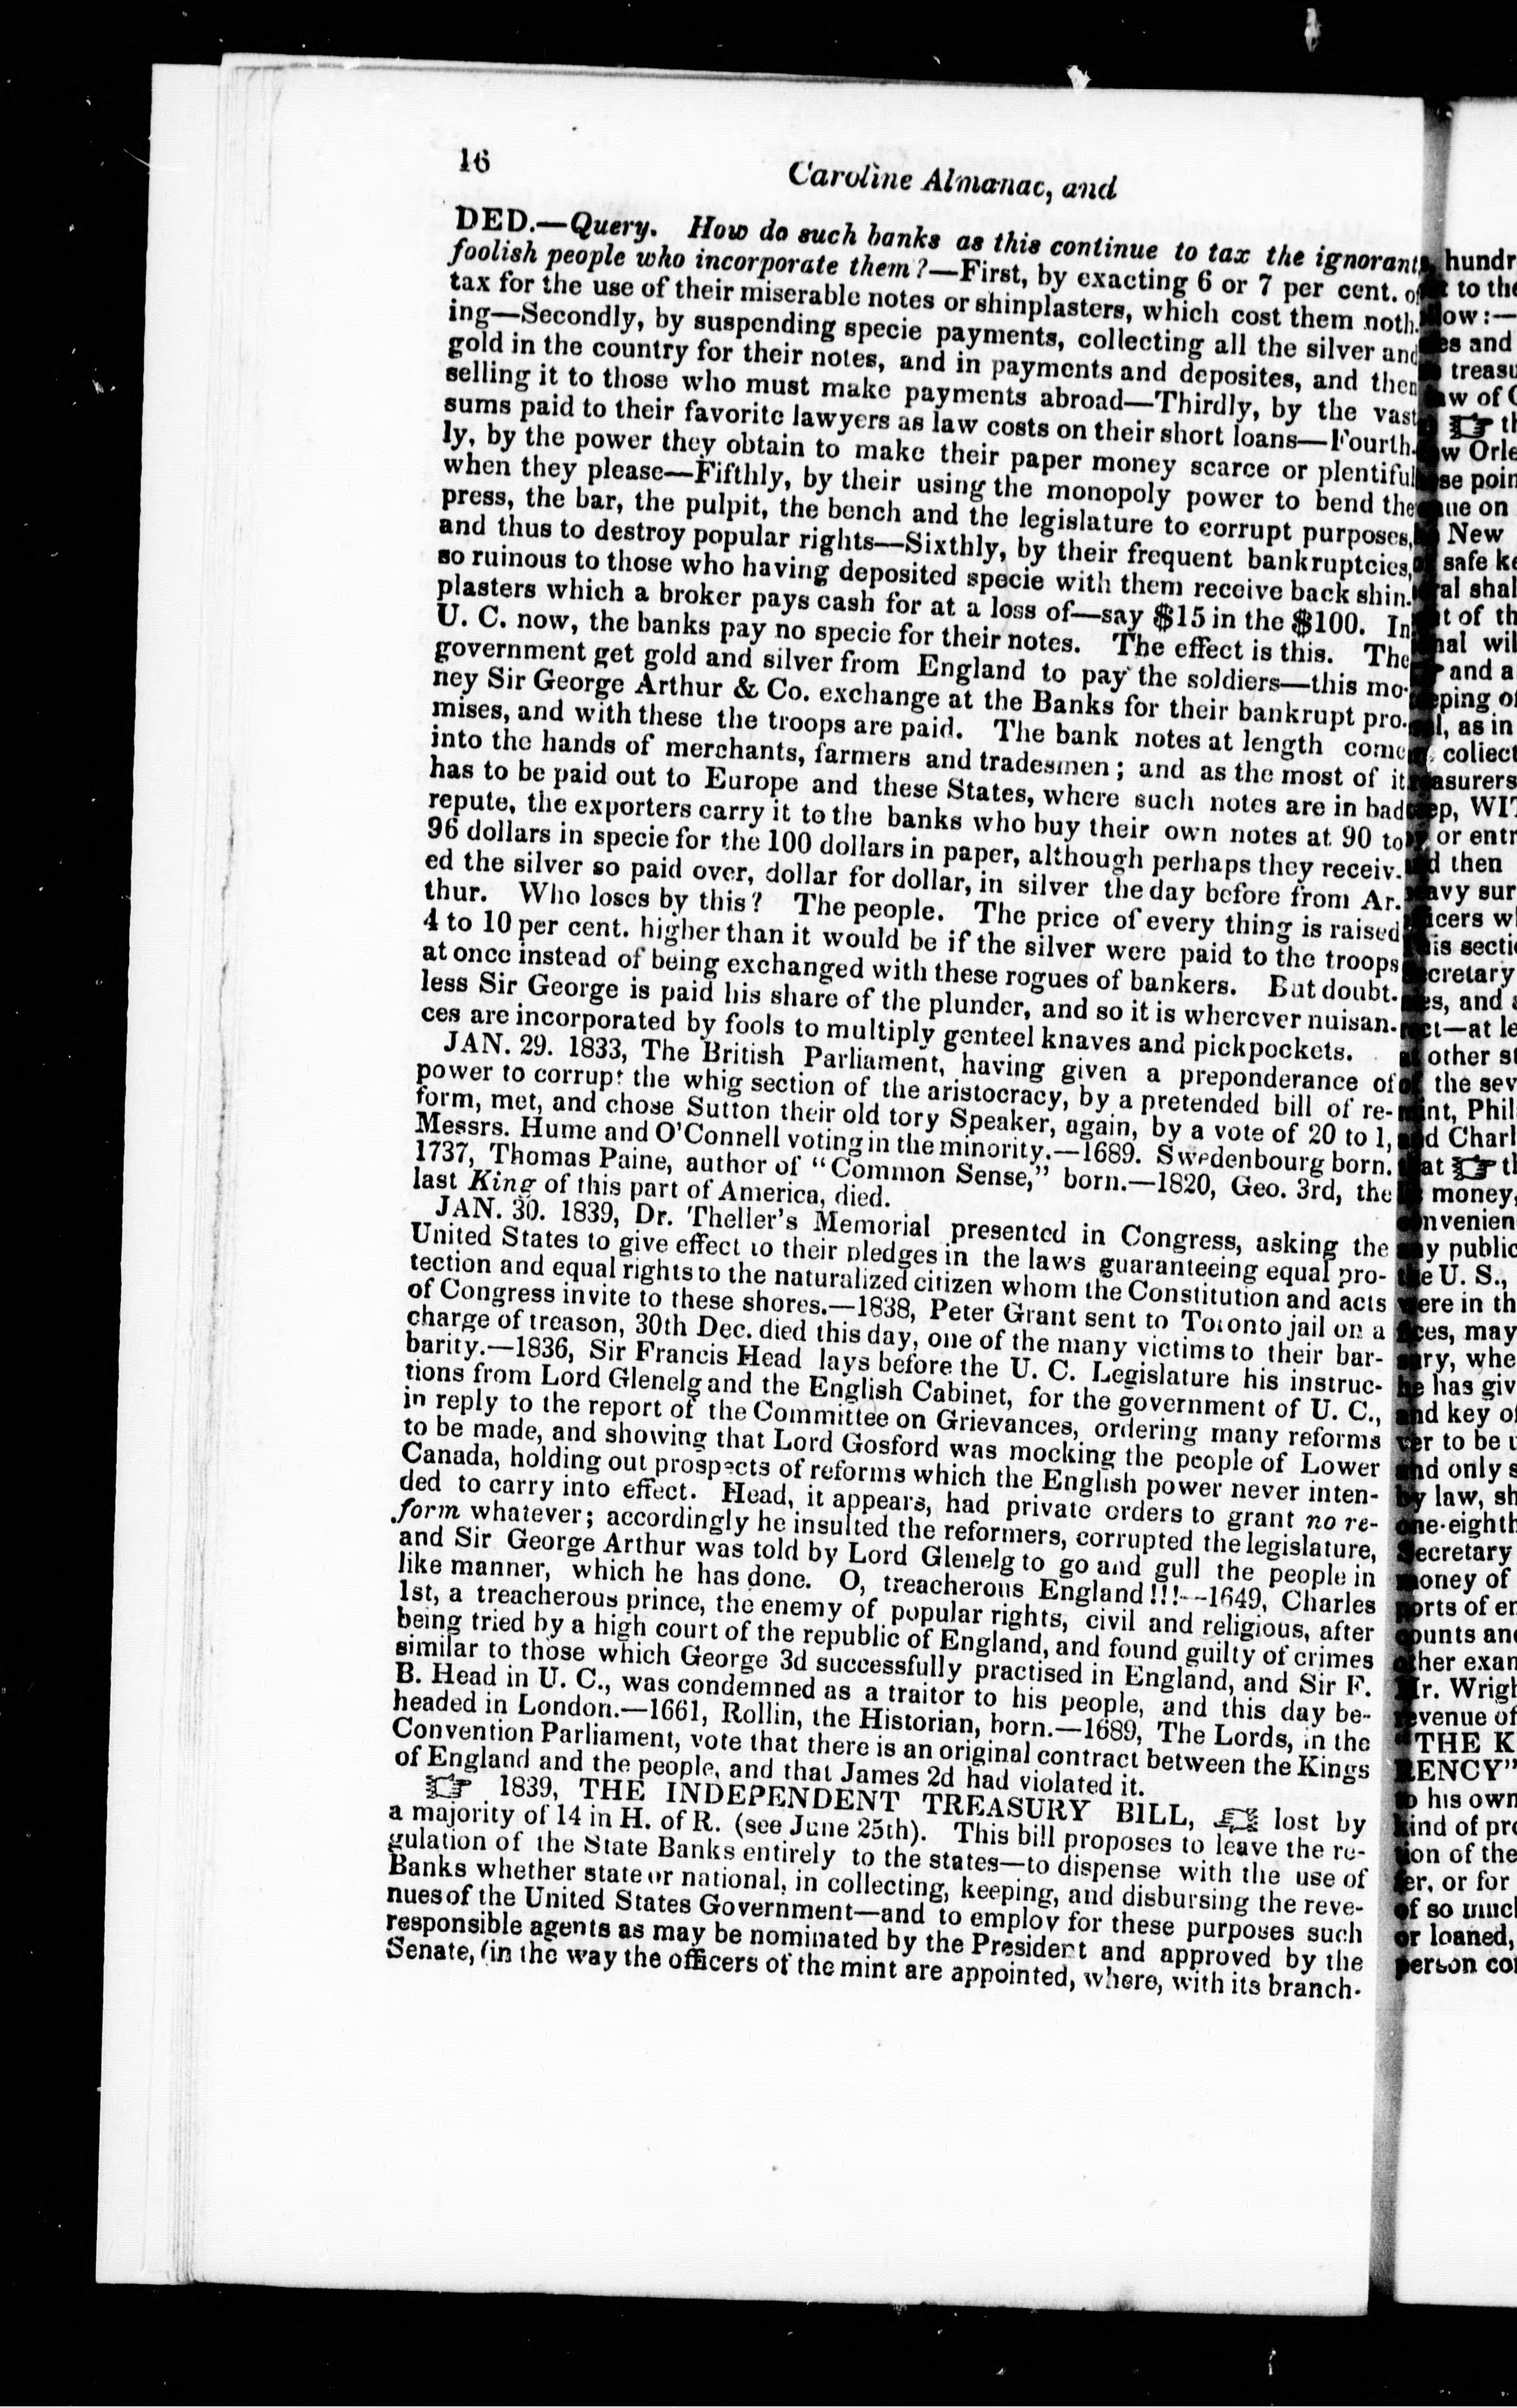 16
Caroline Almanac, and
DED.—Query. How do such banks as this continue to tax the ignorant
foolish people who incorporate them?—First, by exacting 6 or 7 per cent. of
tax for the use of their miserable notes or shinplasters, which cost them noth-
ing—Secondly, by suspending specie payments, collecting all the silver and
gold in the country for their notes, and in payments and deposites, and then
selling it to those who must make payments abroad—Thirdly, by the vast
sums paid to their favorite lawyers as law costs on their short loans—Fourth-
ly, by the power they obtain to make their paper money scarce or plentiful
when they please—Fifthly, by their using the monopoly power to bend the
press, the bar, the pulpit, the bench and the legislature to corrupt purposes,
and thus to destroy popular rights—Sixthly, by their frequent bankruptcies,
so ruinous to those who having deposited specie with them receive back shin-
plasters which a broker pays cash for at a loss of—say $15 in the $100. In
U. C. now, the banks pay no specie for their notes. The effect is this. The
government get gold and silver from England to pay the soldiers—this mo-
ney Sir George Arthur & Co. exchange at the Banks for their bankrupt pro-
mises, and with these the troops are paid. The bank notes at length come
into the hands of merchants, farmers and tradesmen; and as the most of it
has to be paid out to Europe and these States, where such notes are in bad
repute, the exporters carry it to the banks who buy their own notes at 90 to
96 dollars in specie for the 100 dollars in paper, although perhaps they receiv-
ed the silver so paid over, dollar for dollar, in silver the day before from Ar-
thur. Who loses by this? The people. The price of every thing is raised
4 to 10 per cent. higher than it would be if the silver were paid to the troops
at once instead of being exchanged with these rogues of bankers. But doubt-
less Sir George is paid his share of the plunder, and so it is wherever nuisan-
ces are incorporated by fools to multiply genteel knaves and pickpockets.
JAN. 29. 1833, The British Parliament, having given a preponderance of
power to corrupt the whig section of the aristocracy, by a pretended bill of re-
form, met, and chose Sutton their old tory Speaker, again, by a vote of 20 to 1,
Messrs. Hume and O'Connell voting in the minority.—1689. Swedenbourg born.
1737, Thomas Paine, author of "Common Sense," born.—1820, Geo. 3rd, the
last King of this part of America, died.
JAN. 30. 1839, Dr. Theller's Memorial presented in Congress, asking the
United States to give effect to their pledges in the laws guaranteeing equal pro-
tection and equal rights to the naturalized citizen whom the Constitution and acts
of Congress invite to these shores.—1838, Peter Grant sent to Toronto jail on a
charge of treason, 30th Dec. died this day, one of the many victims to their bar-
barity.—1836, Sir Francis Head lays before the U. C. Legislature his instruc-
tions from Lord Glenelg and the English Cabinet, for the government of U. C.,
in reply to the report of the Committee on Grievances, ordering many reforms
to be made, and showing that Lord Gosford was mocking the people of Lower
Canada, holding out prospects of reforms which the English power never inten-
ded to carry into effect. Head, it appears, had private orders to grant no re-
form whatever; accordingly he insulted the reformers, corrupted the legislature,
and Sir George Arthur was told by Lord Glenelg to go and gull the people in
like manner, which he has done. O, treacherous England!!!—1649, Charles
1st, a treacherous prince, the enemy of popular rights, civil and religious, after
being tried by a high court of the republic of England, and found guilty of crimes
similar to those which George 3d successfully practised in England, and Sir F.
B. Head in U. C., was condemned as a traitor to his people, and this day be-
headed in London.—1661, Rollin, the Historian, born.—1689, The Lords, in the
Convention Parliament, vote that there is an original contract between the Kings
of England and the people, and that James 2d had violated it.
☞ 1839, THE INDEPENDENT TREASURY BILL, ☜ lost by
a majority of 14 in H. of R. (see June 25th). This bill proposes to leave the re-
gulation of the State Banks entirely to the states—to dispense with the use of
Banks whether state or national, in collecting, keeping, and disbursing the reve-
nues of the United States Government—and to employ for these purposes such
responsible agents as may be nominated by the President and approved by the
Senate, (in the way the officers of the mint are appointed, where, with its branch-